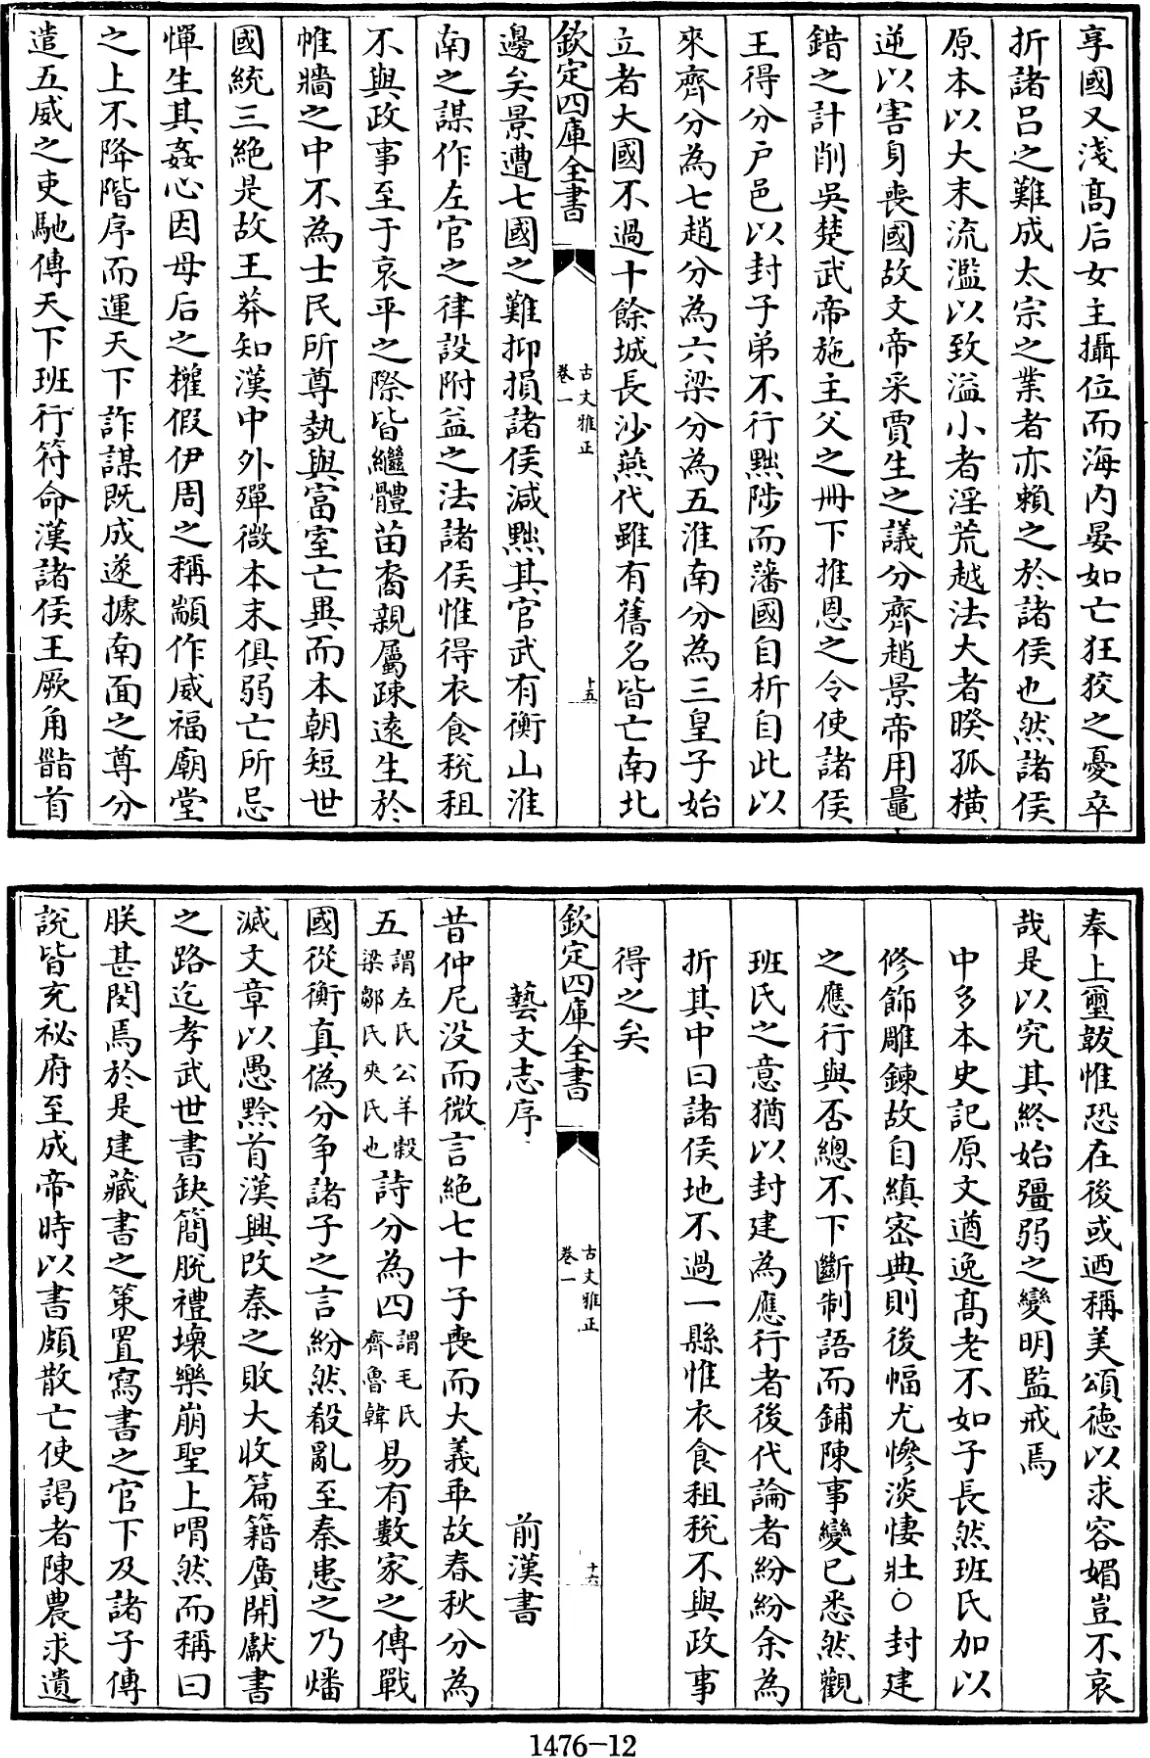 享國又淺髙后女主攝位而海内晏如亡狂狡之憂卒
折諸吕之難成太宗之業者亦賴之於諸侯也然諸侯
原本以大末流濫以致溢小者淫荒越法大者睽孤横
逆以害身喪國故文帝采賈生之議分齊趙景帝用鼂
錯之計削吳楚武帝施主父之冊下推恩之令使諸侯
王得分户邑以封子弟不行黜陟而藩國自析自此以
來齊分為七趙分為六梁分為五淮南分為三皇子始
立者大國不過十餘城長沙燕代雖有舊名皆亡南北
欽定四庫全書
古文雅正
卷一
十五
邊矣景遭七國之難抑損諸侯減黜其官武有衡山淮
南之謀作左官之律設附益之法諸侯惟得衣食稅租
不與政事至于哀平之際皆繼體苗裔親屬疎逺生於
帷牆之中不為士民所尊埶與富室亡異而本朝短世
國統三絶是故王莽知漢中外殫微本末俱弱亡所忌
憚生其姦心因母后之權假伊周之稱顓作威福廟堂
之上不降階序而運天下詐謀既成遂據南面之尊分
遣五威之吏馳傳天下班行符命漢諸侯王厥角䭫首
奉上璽韍惟恐在後或迺稱美頌徳以求容媚豈不哀
哉是以究其終始彊弱之變明監戒焉
中多本史記原文遒逸髙老不如子長然班氏加以
修飾雕鍊故自縝密典則後幅尤慘淡悽壯○封建
之應行與否總不下斷制語而鋪陳事變已悉然觀
班氏之意猶以封建為應行者後代論者紛紛余為
折其中曰諸侯地不過一縣惟衣食租稅不與政事
得之矣
欽定四庫全書
古文雅正
卷一
十六
藝文志序 前漢書
昔仲尼没而微言絶七十子喪而大義乖故春秋分為
五謂左氏公羊榖梁鄒氏夾氏也詩分為四謂毛氏齊魯韓易有數家之傳戰
國從衡真偽分争諸子之言紛然殽亂至秦患之乃燔
滅文章以愚黔首漢興改秦之敗大收篇籍廣開獻書
之路迄孝武世書缺簡脱禮壞樂崩聖上喟然而稱曰
朕甚閔焉於是建藏書之策置寫書之官下及諸子傳
説皆充祕府至成帝時以書頗散亡使謁者陳農求遺
1476-12